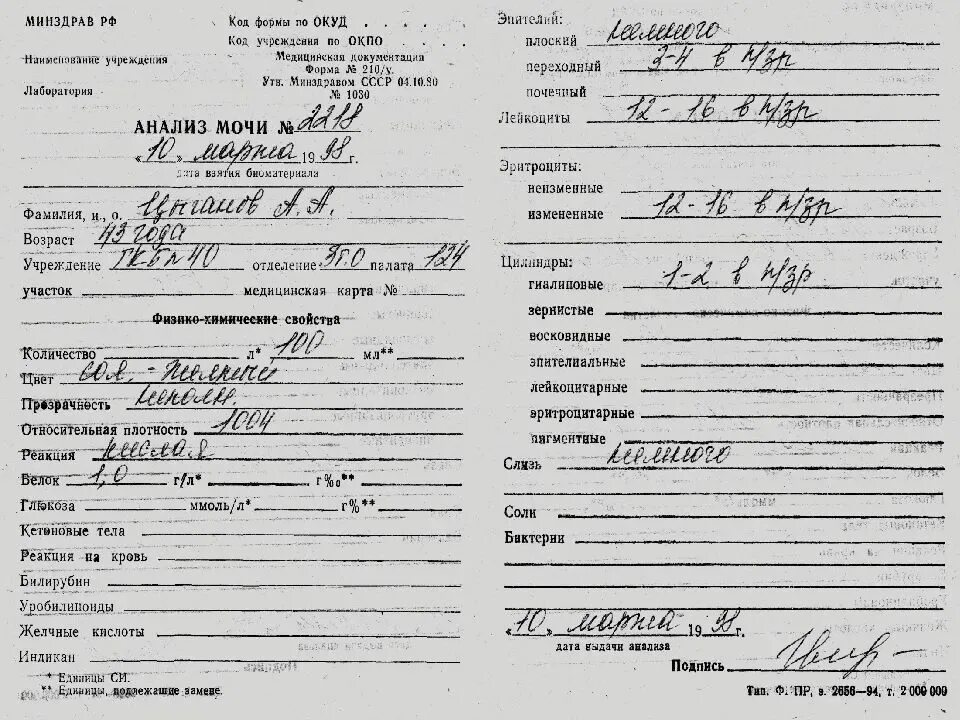 МИНЗДРАВ РФ
Код формы по ОКУД . . . .
Код учреждения по ОКПО . . .
Наименование учреждения
Медицинская документация
Форма № 210/у.
Утв. Минздравом СССР 04.10.80
№ 1030
Лаборатория
АНАЛИЗ МОЧИ № 2218
«10» марта 1998 г.
дата взятия биоматериала
Фамилия, и., о. Цыганов А. А.
Возраст 43 года
Учреждение ГКБ№40 отделение палата 124
участок медицинская карта №
Физико-химические свойства
Количество л* 100 мл**
Цвет сол.-желтый
Прозрачность неполн.
Относительная плотность 1004
Реакция кислая
Белок 1,0 г/л* г‰**
Глюкоза ммоль/л* г%**
Кетоновые тела
Реакция на кровь
Билирубин
Уробилиноиды
Желчные кислоты
Индикан
* Единицы СИ.
** Единицы, подлежащие замене.
Эпителий:
плоский немного
переходный 3-4 в п/зр
почечный
Лейкоциты 12-16 в п/зр
Эритроциты:
неизменные
измененные 12-16 в п/зр
Цилиндры:
гиалиповые 1-2 в п/зр
зернистые
восковидные
эпителиальные
лейкоцитарные
эритроцитарные
пигментные
Слизь немного
Соли
Бактерии
«10» марта 1998 г.
дата выдачи анализа
Подпись
Тип. Ф. ПР, з. 2656—94, т. 2 000 000